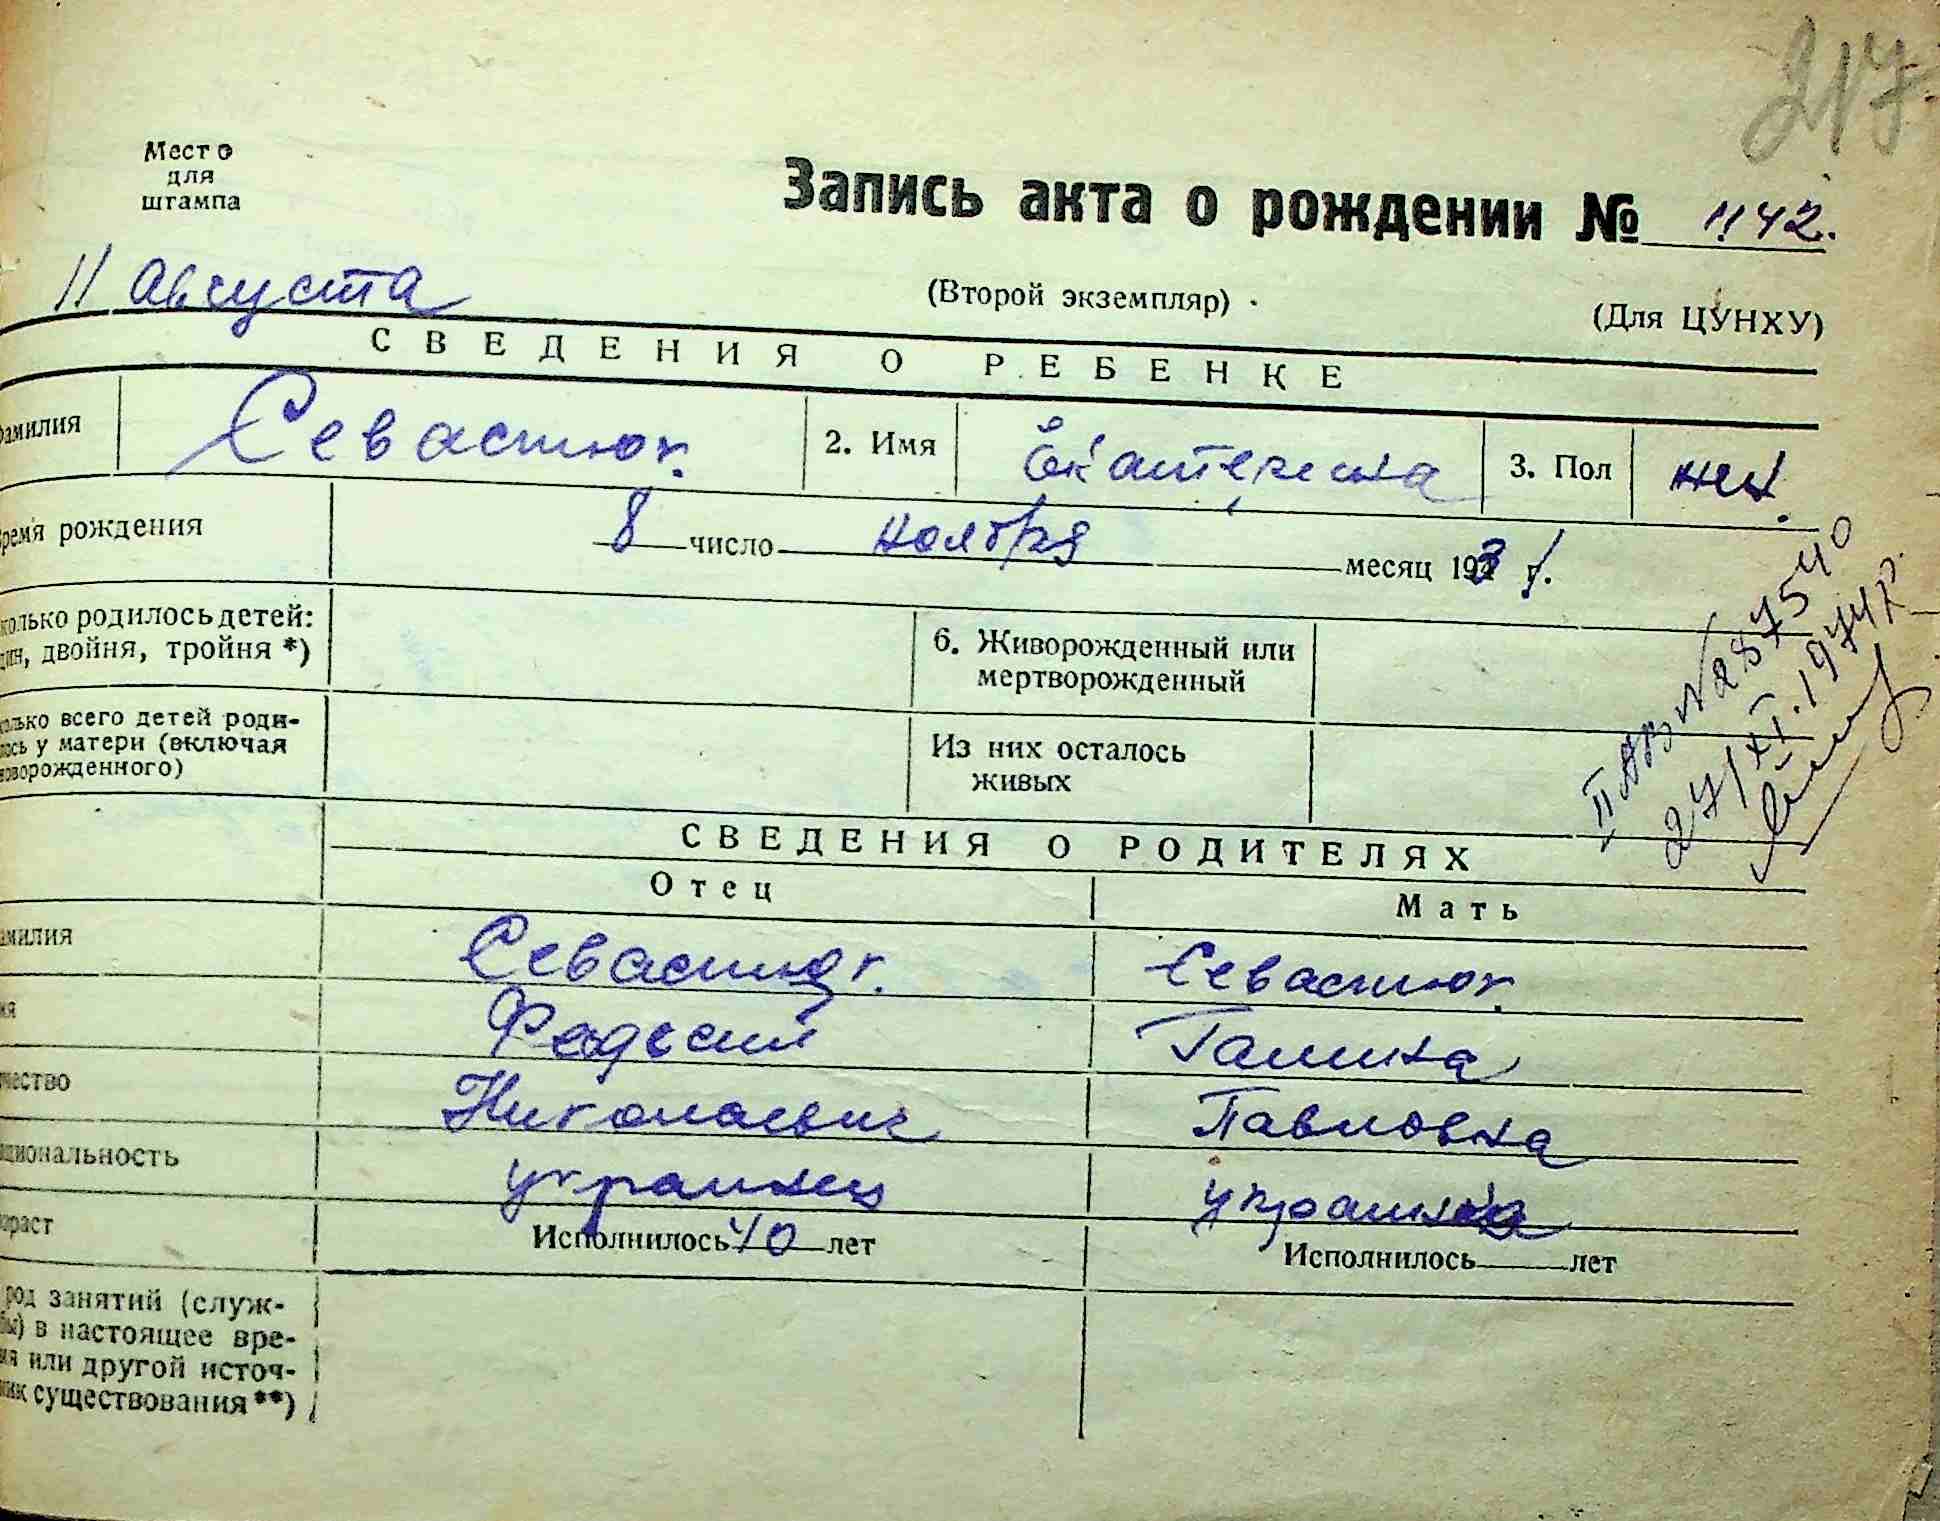 217
Место
для
штампа
Запись акта о рождении № 1142.
11 августа
(Второй экземпляр)
(Для ЦУНХУ)
СВЕДЕНИЯ О РЕБЕНКЕ
амилия Севастюк. 2. Имя Екатерина 3. Пол жен.
ремя рождения 8 число ноября месяц 193 г.
колько родилось детей:
дин, двойня, тройня *)
6. Живорожденный или
мертворожденный
колько всего детей роди-
лось у матери (включая
новорожденного)
Из них осталось
живых
II АВ № 287540
27/XI.1974 г.
СВЕДЕНИЯ О РОДИТЕЛЯХ
Отец Мать
амилия Севастюк. Севастюк.
мя Галина
чество Николаевич Павловна
циональность украинец украинка
зраст Исполнилось 40 лет Исполнилось лет
род занятий (служ-
бы) в настоящее вре-
мя или другой источ-
ник существования **)